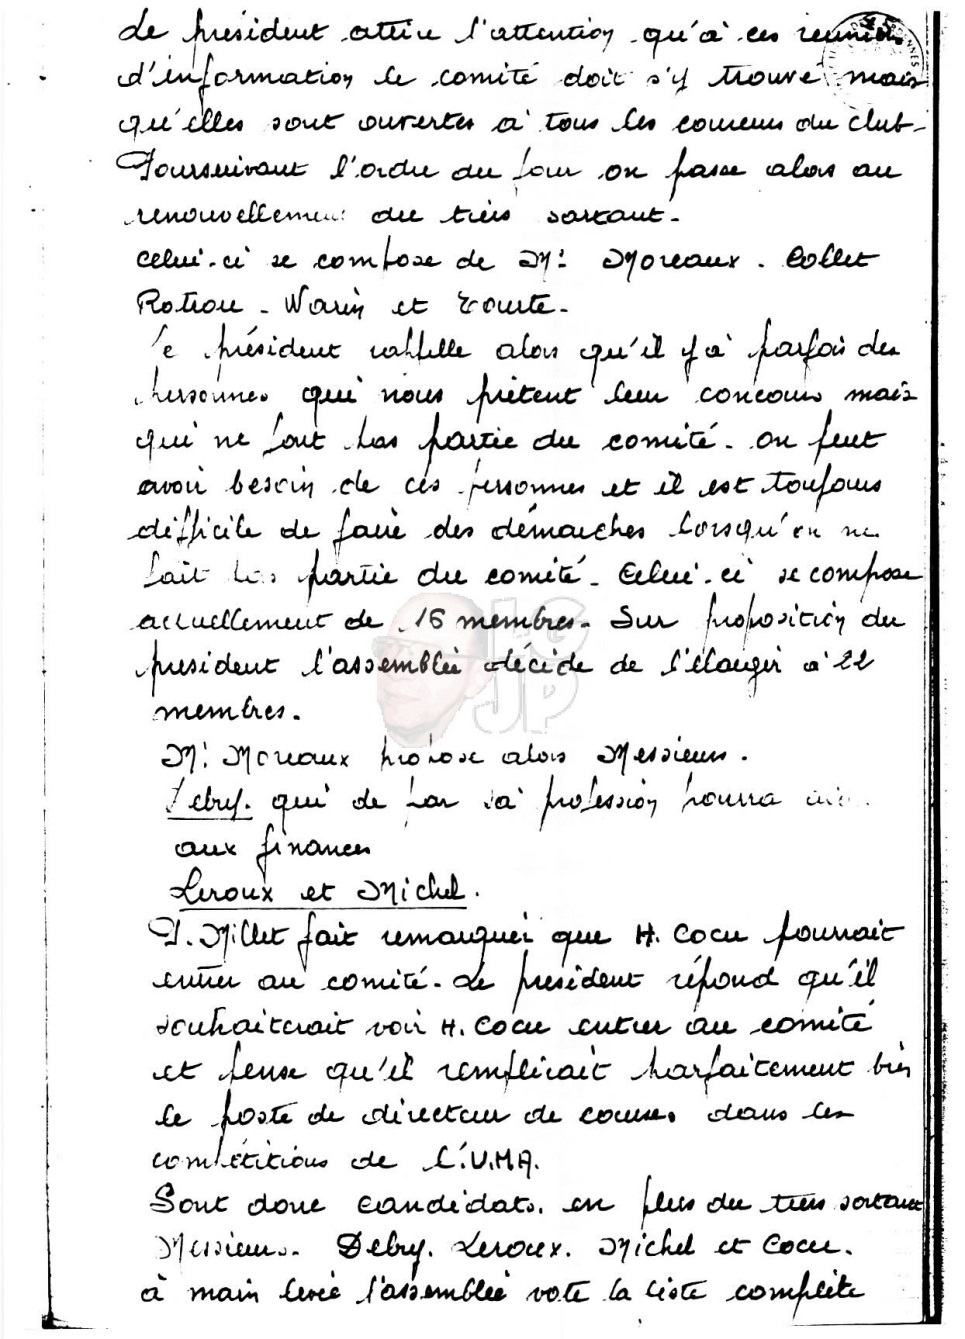 Le président attire l'attention qu'à ces réunions
d'information le comité doit s'y trouve mais
qu'elles sont ouvertes à tous les coureurs du club-
Poursuivant l'ordre du jour on passe alors au
renouvellement du tiers sortant-
Celui-ci se compose de Mr Moreaux - Collet
Rotrou - Warin et Tourte-
Le président rappelle alors qu'il y à parfois des
personnes qui nous prêtent leur concours mais
qui ne font pas partie du comité- on peut
avoir besoin de ces personnes et il est toujours
difficile de faire des démarches lorsqu'on ne
fait pas partie du comité- Celui-ci se compose
actuellement de 16 membres- Sur proposition du
president l'assemblée décide de l'élargir à 22
membres-
Mr Moreaux propose alors Messieurs.
Debry. qui de par sa profession pourra
aux finances
Leroux et Michel.
P. Millet fait remarquer que H. Cocu pourrait
entrer au comité- Le president répond qu'il
souhaiterait voir H. Cocu entrer au comité
et pense qu'il remplirait parfaitement bien
le poste de directeur de courses dans les
compétitions de l'U.M.A.
Sont donc candidats. en plus du tiers sortant
Messieurs. Debry. Leroux. Michel et Cocu.
à main levée l'assemblée vote la liste complète
LG
JP